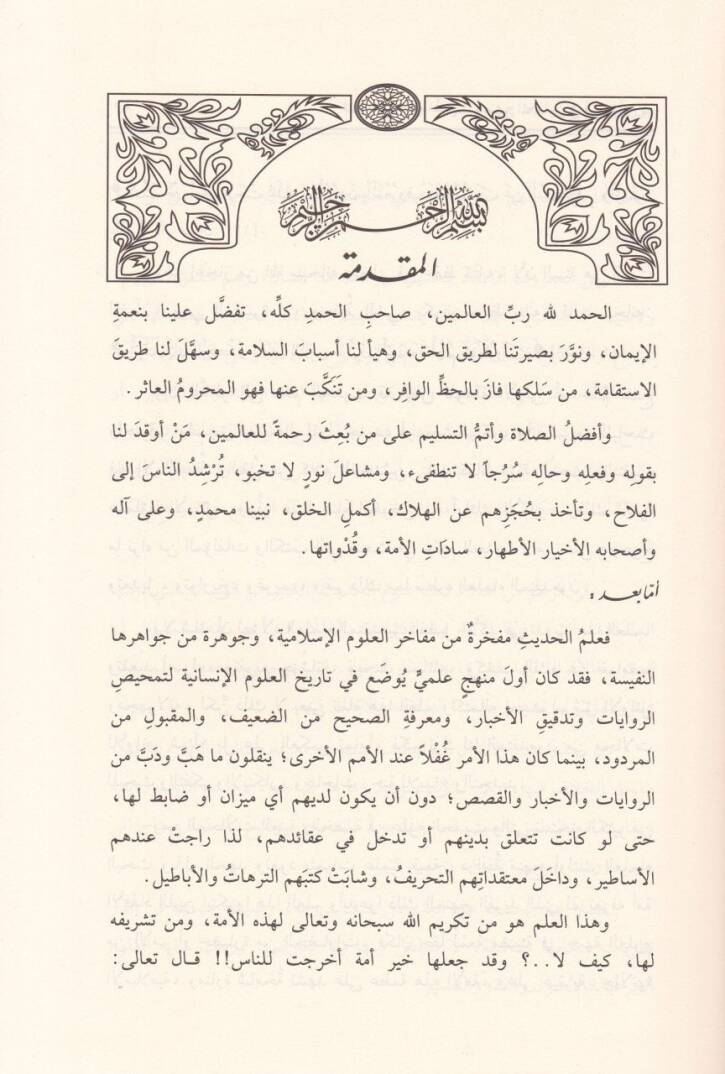 بسم الله الرحمن الرحيم
المقدمة
الحمد لله ربِّ العالمين، صاحبِ الحمدِ كلِّه، تفضَّل علينا بنعمةِ
الإيمان، ونوَّرَ بصيرتَنا لطريق الحق، وهيأ لنا أسبابَ السلامة، وسهَّلَ لنا طريقَ
الاستقامة، من سَلكها فازَ بالحظِّ الوافِر، ومن تَنَكَّبَ عنها فهو المحرومُ العاثر.
وأفضلُ الصلاة وأتمُّ التسليم على من بُعِثَ رحمةً للعالمين، مَنْ أوقدَ لنا
بقولِه وفعلِه وحالِه سُرُجاً لا تنطفىء، ومشاعلَ نورٍ لا تخبو، تُرْشِدُ الناسَ إلى
الفلاح، وتأخذ بحُجَزِهم عن الهلاك، أكملِ الخلق، نبينا محمدٍ، وعلى آله
وأصحابه الأخيار الأطهار، سادَاتِ الأمة، وقُدْواتها.
أمّا بعد:
فعلمُ الحديثِ مفخرةٌ من مفاخر العلوم الإسلامية، وجوهرة من جواهرها
النفيسة، فقد كان أولَ منهجٍ علميٍّ يُوضَع في تاريخ العلوم الإنسانية لتمحيصِ
الروايات وتدقيقِ الأخبار، ومعرفةِ الصحيح من الضعيف، والمقبولِ من
المردود، بينما كان هذا الأمر غُفْلاً عند الأمم الأخرى؛ ينقلون ما هَبَّ ودَبَّ من
الروايات والأخبار والقصص؛ دون أن يكون لديهم أي ميزان أو ضابط لها،
حتى لو كانت تتعلق بدينهم أو تدخل في عقائدهم، لذا راجتْ عندهم
الأساطير، وداخَلَ معتقداتِهم التحريفُ، وشابَتْ كتبَهم الترهاتُ والأباطيل.
وهذا العلم هو من تكريم الله سبحانه وتعالى لهذه الأمة، ومن تشريفه
لها، كيف لا..؟ وقد جعلها خير أمة أخرجت للناس!! قال تعالى: